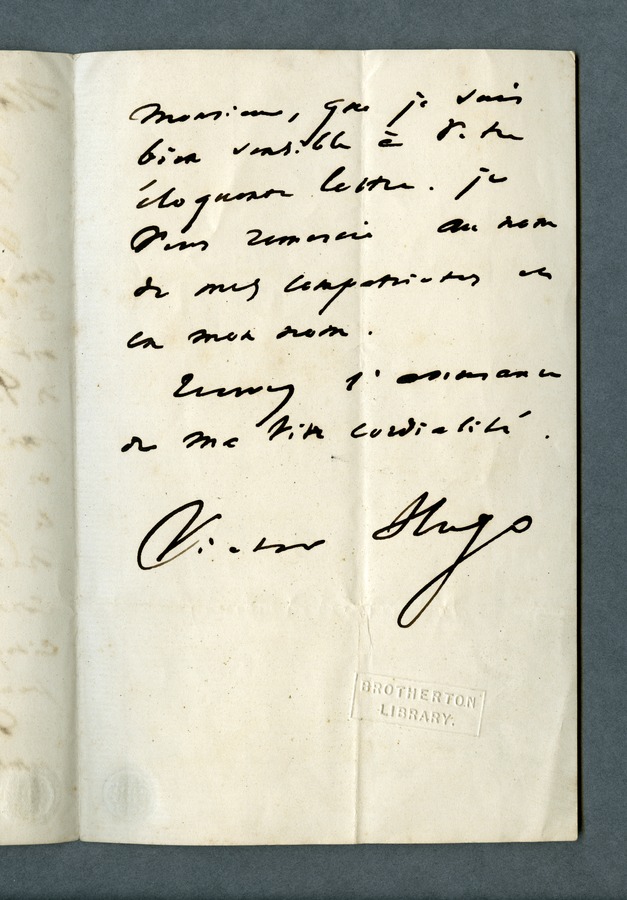 Monsieur, que je suis
bien sensible à votre
éloquente lettre. je
vous remercie au nom
de mes compatriotes et
en mon nom.
Recevez l'assurance
de ma vive cordialité.
Victor Hugo
BROTHERTON
LIBRARY.